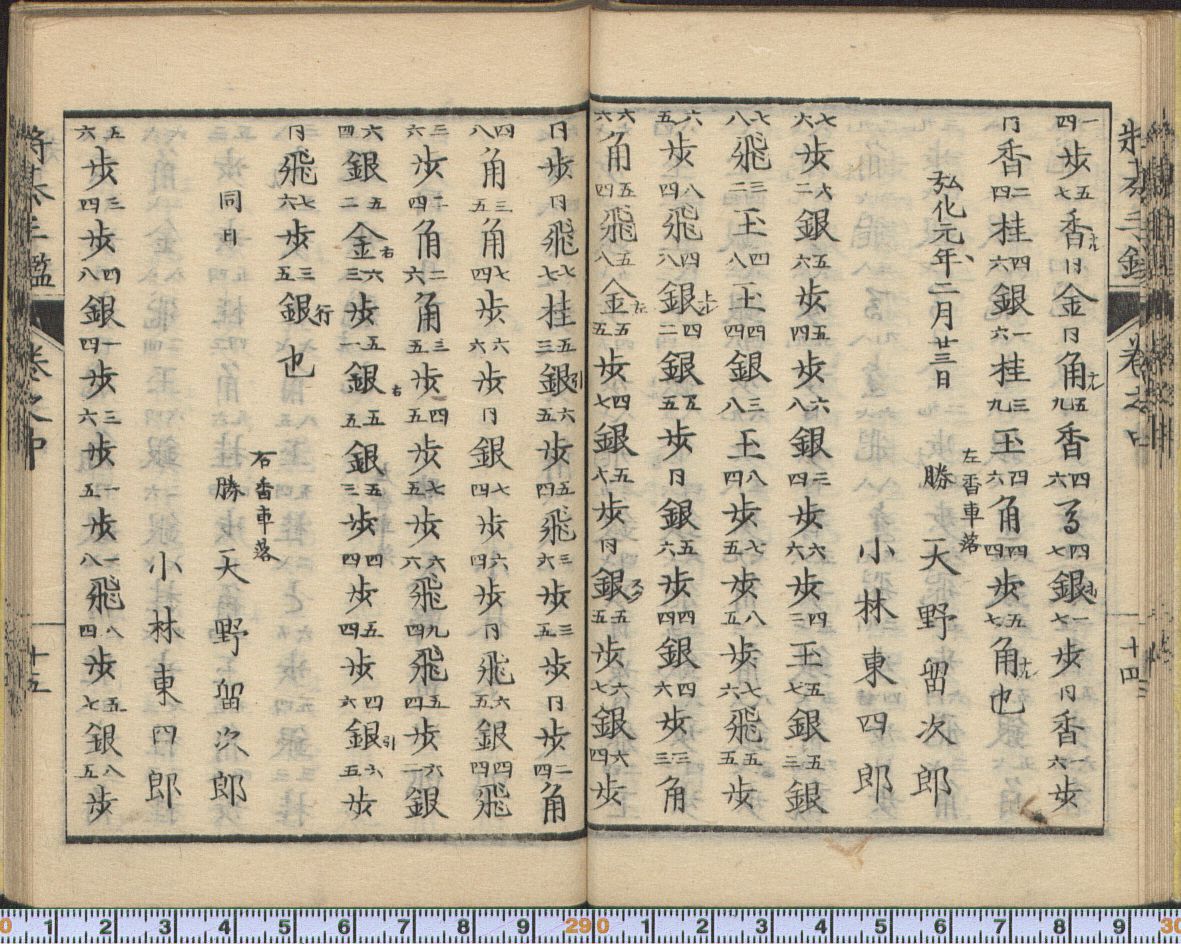 将棊手鑑 巻之中 十四
一四歩五七香成同金同角成五九香四六馬四七銀打一七歩同香一六歩
同香二四桂四六銀一六桂三九玉四六角四四歩五七角成也
弘化元年二月廿三日
左香車落
勝 天野留次郎
小林東四郎
七六歩六二銀五六歩五四歩六八銀三四歩六六歩四二王五七銀五三銀
七八飛三二王四八王四四銀三八王八四歩七五歩八五歩七六飛五五歩
六五歩八四飛四八銀上四二銀五五歩同銀五六歩四四銀四六歩三三角
六六角五四飛五八金左五五歩四七銀五六歩同銀五五歩六七銀六四歩
同歩同飛七七桂五三銀引六五歩五四飛三六歩三五歩同歩二四角
四八角三五角七四歩六六歩同銀七四歩六四歩同飛六五銀四四飛
三六歩二四角二六角三五歩四二歩七五歩六六飛九四飛五四歩六二銀
六四銀五二金右六三歩五一銀右五五銀五三歩四四歩五四歩四六銀引六五歩
同飛七六歩三五銀行也
右香車落
同日 勝 天野留次郎
小林東四郎
五六歩三四歩四八銀一四歩三六歩一五歩一八飛八四歩五七銀八五歩
将棊手鑑 巻之中 十五